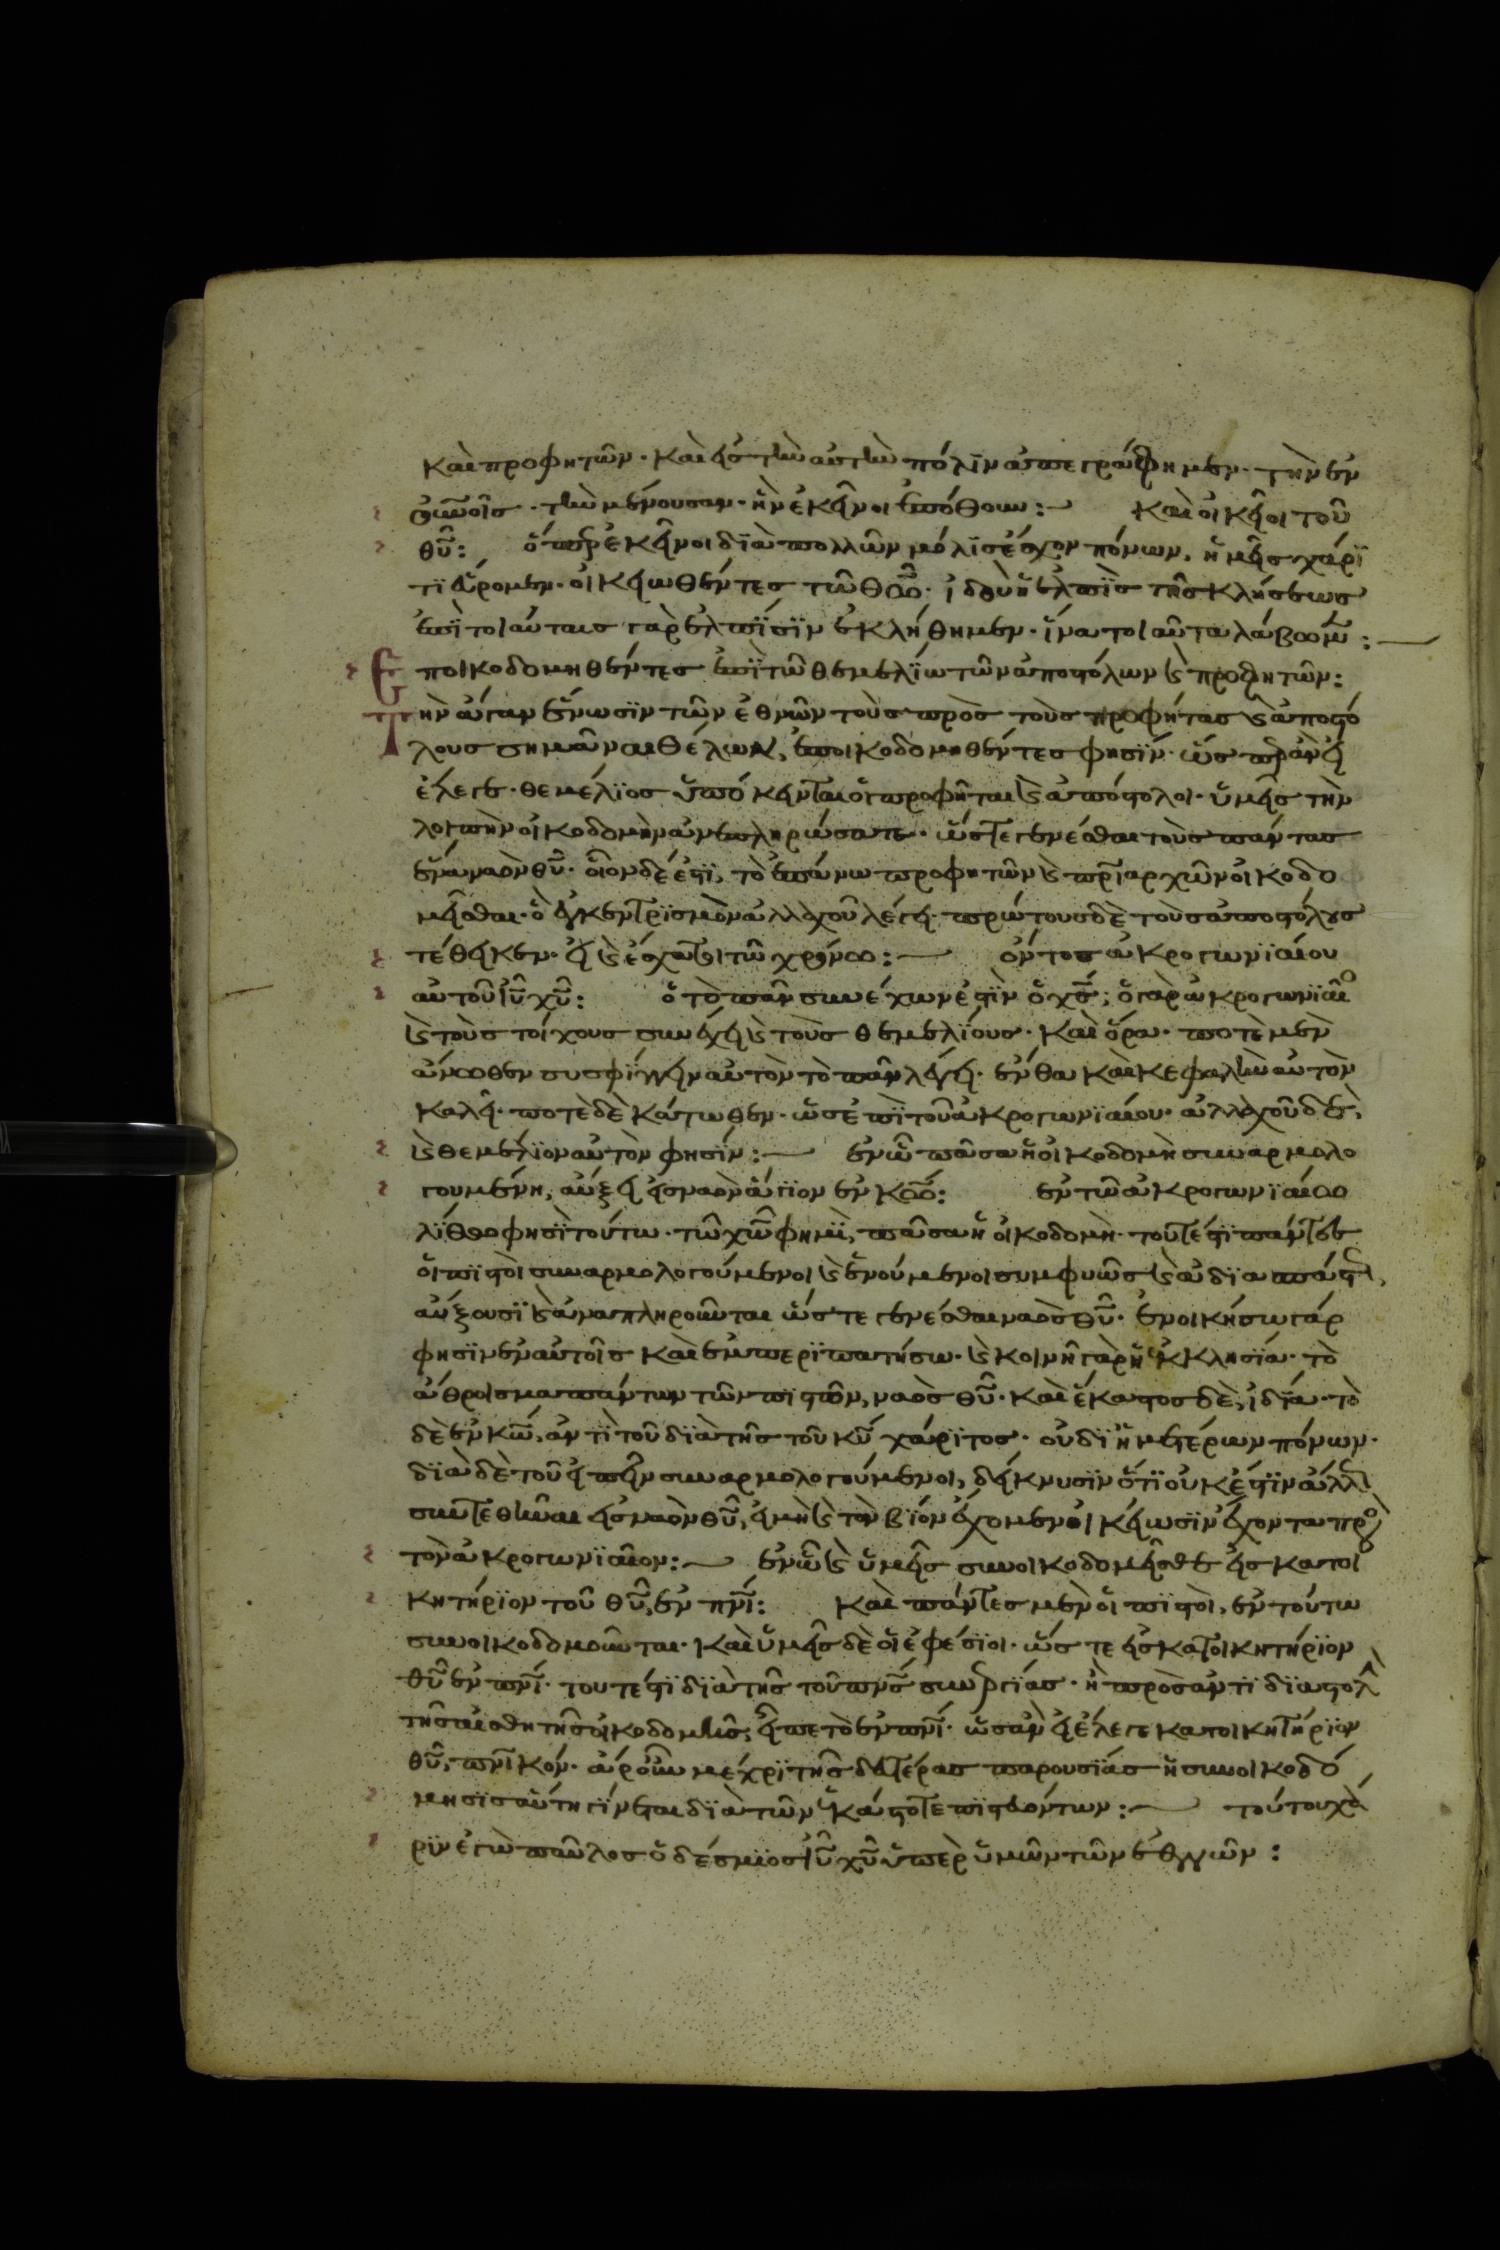 καὶ προφητῶν· καὶ εἰς τὴν αὐτὴν πόλιν ἀπεγράφημεν· τὴν ἐν
οὐνοῖς· τὴν μένουσαν· ἣν ἐκεῖνοι ἐπόθουν: Καὶ οἰκεῖοι τοῦ
θυ: ὅπερ ἐκεῖνοι διὰ πολλῶν μόλις ἔσχον πόνων, ἡμεῖς χάρι
τι εὕρομεν· οἰκειωθέντες τῶ θω· ἰδοὺ ἡ ἐλπὶς τῆς κλήσεως
ἐπὶ τοιαύταις γὰρ ἐλπίσιν ἐκλήθημεν· ἵνα τοιαῦτα λάβωμεν:
Ἐποικοδομηθέντες ἐπὶ τῶ θεμελίω τῶν ἀποστόλων καὶ προφητῶν:
Τὴν ἄγαν ἕνωσιν τῶν ἐθνῶν τοὺς πρὸς τοὺς προφήτας καὶ ἀποστό
λους σημᾶναι θέλων, ἐποικοδομηθέντες φησίν· ὥσπερ ἂν εἰ
ἔλεγε· θεμέλιος ὑπόκεινται οἱ προφῆται καὶ ἀπόστολοι· ὑμεῖς τὴν
λοιπὴν οἰκοδομὴν ἀνεπληρώσατε· ὥστε γενέσθαι τοὺς πάντας
ἕνα ναὸν θυ· οἷον δέ ἐστι, τὸ ἐπάνω προφητῶν καὶ πριαρχῶν οἰκοδο
μεῖσθαι· ὃ ἐγκεντρισμὸν ἀλλαχοῦ λέγει· πρώτους δὲ τοὺς ἀποστόλους
τέθεικεν· εἰ καὶ ἔσχατοι τῶ χρόνω: ὄντος ἀκρογωνιαίου
αὐτοῦ ιυ χυ: ὁ τὸ πᾶν συνέχων ἐστὶν ὁ χς· ὁ γὰρ ἀκρογωνιαῖος
καὶ τοὺς τοίχους συνέχει καὶ τοὺς θεμελίους· καὶ ὅρα· ποτὲ μὲν
ἄνωθεν συσφίγγειν αὐτὸν τὸ πᾶν λέγει· ἔνθα καὶ κεφαλὴν αὐτὸν
καλεῖ· ποτὲ δὲ κάτωθεν· ὡς ἐπὶ τοῦ ἀκρογωνιαίου· ἀλλαχοῦ δὲ
καὶ θεμέλιον αὐτὸν φησίν: ἐν ὧ πᾶσα ἡ οἰκοδομὴ συναρμολο
γουμένη, αὔξει εἰς ναὸν ἅγιον ἐν κω: ἐν τῶ ἀκρογωνιαίω
λίθω φησὶ τούτω· τῶ χω φημὶ, πᾶσα ἡ οἰκοδομὴ· τουτέστι πάντες
οἱ πιστοὶ συναρμολογούμενοι καὶ ἑνούμενοι συμφυῶς καὶ ἀδιασπάστως,
αὔξουσι καὶ ἀναπληροῦνται ὥστε γενέσθαι ναὸς θυ· ἐνοικήσω γάρ
φησιν ἐν αὐτοῖς καὶ ἐμπεριπατήσω· καὶ κοινῆ γὰρ ἡ ἐκκλησία· τὸ
ἄθροισμα πάντων τῶν πιστῶν, ναὸς θυ· καὶ ἕκαστος δὲ, ἰδία· τὸ
δὲ ἐν κω, ἀντὶ τοῦ διὰ τῆς τοῦ κυ χάριτος· οὐ δι ἡμετέρων πόνων·
διὰ δὲ τοῦ εἰπεῖν συναρμολογούμενοι, δείκνυσιν ὅτι οὐκ ἔστιν ἄλλως
συντεθῆναι εἰς ναὸν θυ, εἰ μὴ καὶ τὸν βίον ἔχομεν οἰκείωσιν ἔχοντα πρὸς
τὸν ἀκρογωνιαῖον: ἐν ὧ καὶ ὑμεῖς συνοικοδομεῖσθε εἰς κατοι
κητήριον τοῦ θυ, ἐν πνι: Καὶ πάντες μὲν οἱ πιστοὶ, ἐν τούτω
συνοικοδομοῦνται· καὶ ὑμεῖς δὲ οἱ ἐφέσιοι· ὥστε εἰς κατοικητήριον
θυ ἐν πνι· τουτέστι διὰ τῆς τοῦ πνς συνεργίας· ἢ πρὸς ἀντιδιαστολὴν
τῆς αἰσθητῆς οἰκοδομῆς, εἶπε τὸ ἐν πνι· ὡσὰν εἰ ἔλεγε κατοικητήριον
θυ, πνικόν· ἄρ οὖν μέχρι τῆς δευτέρας παρουσίας ἡ συνοικοδό
μησις αὕτη γίνεται διὰ τῶν ἑκάστοτε πιστευόντων: τούτου χά
ριν ἐγὼ παῦλος ὁ δέσμιος ιυ χυ ὑπὲρ ὑμῶν τῶν ἐθνῶν: